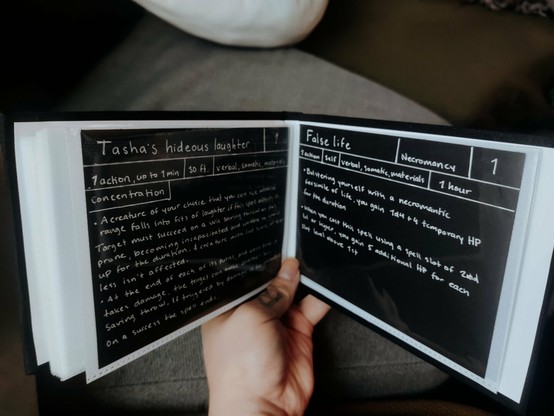 Tasha's hideous laughter
1 action, up to 1 min
30 ft.
verbal, somatic, materials
concentration
• A creature of your choice that you can
range falls into fits of laughter if
Target must succeed on a Wis saving throw or
prone, becoming incapacitated and unable to
up for the duration. A creature with
less isn't affected.
• At the end of each of its turns, and each time
takes damage, the target can
saving throw. If triggered by
on a success the spell ends.
False life
Necromancy
1
1 action
self
verbal, somatic, materials
1 hour
• Bolstering yourself with a necromantic
facsimile of life, you gain 1d4+4 temporary HP
for the duration
• When you cast this spell using a spell slot of 2nd
lvl or higher, you gain 5 additional HP for each
slot level above 1st